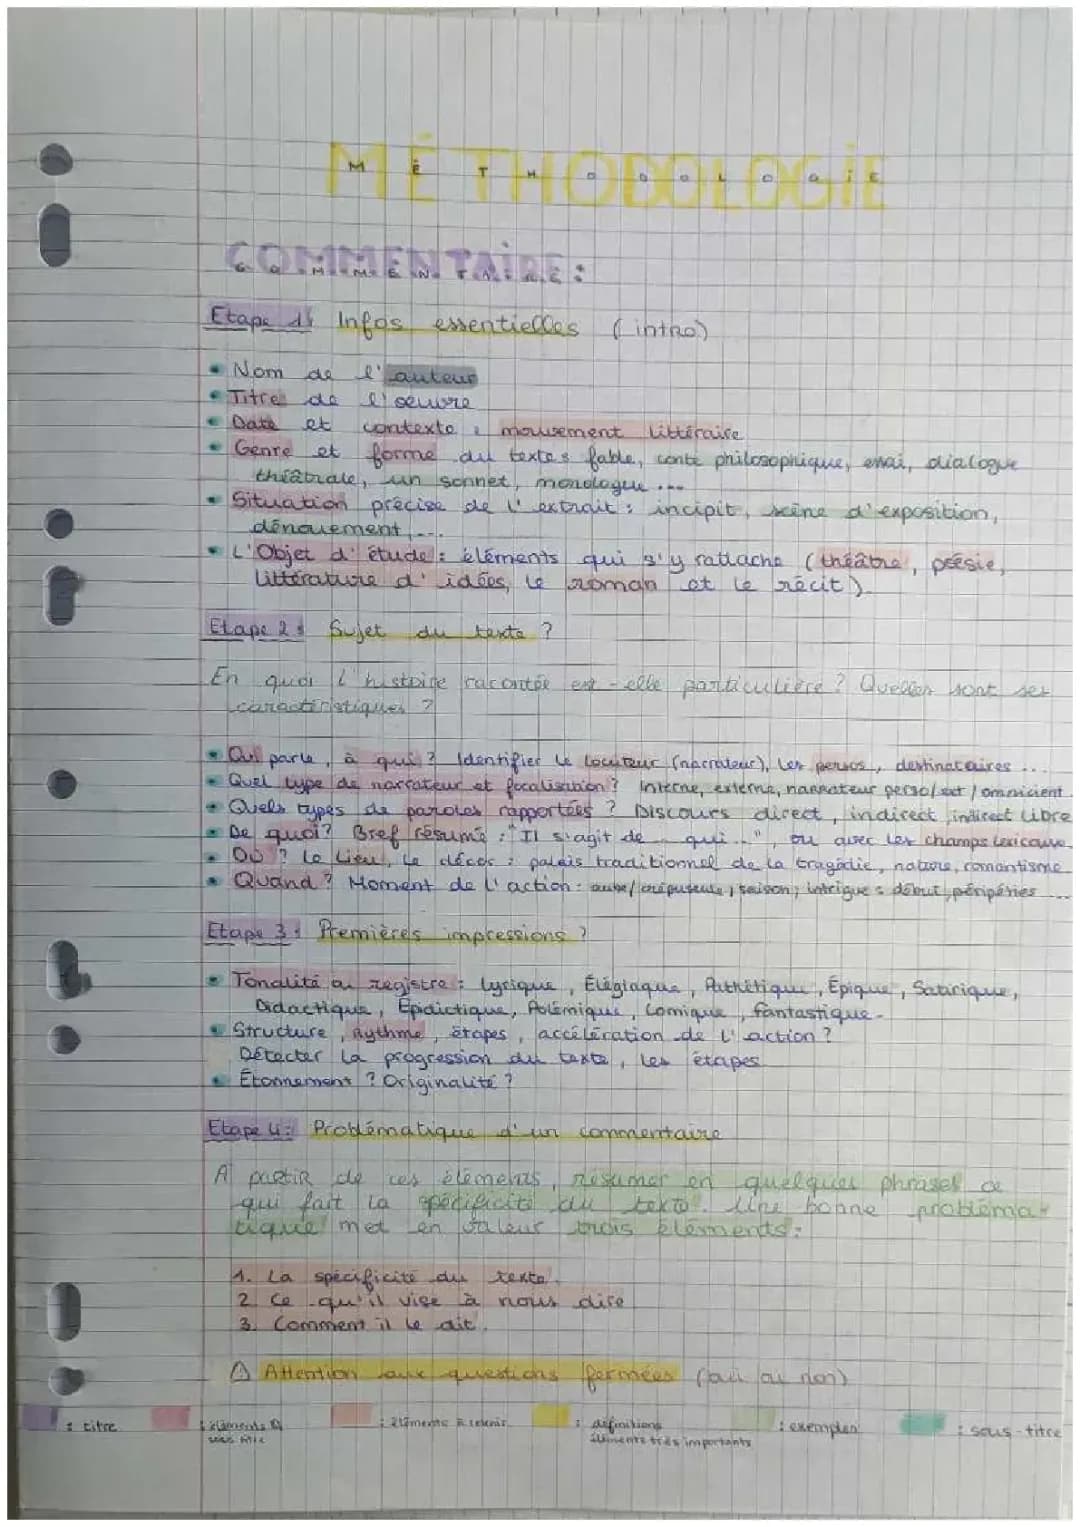 MÉTHODOLOGIE
COMMENTAIRE:
Etape 1: Infos essentielles (intro)
• Nom de l'auteur
• Titre de l'oeuvre
• Date et contexte : mouvement littéraire
• Genre et forme du texte: fable, conte philosophique, essai, dialogue
théâtrale, un sonnet, monologue ...
• Situation précise de l'extrait : incipit, scène d'exposition,
dénouement,...
• L'Objet d'étude : éléments qui s'y rattache (théâtre, poésie,
littérature d'idées, le roman et le récit)
Etape 2: Sujet du texte ?
En quoi l'histoire racontée est-elle particulière ? Quelles sont ses
caractéristiques ?
• Qui parle, à qui ? Identifier le locuteur (narrateur), les persos, destinataires ...
• Quel type de narrateur et focalisation ? Interne, externe, narrateur perso/ext/omnicient
• Quels types de paroles rapportées ? Discours direct, indirect, indirect libre
• De quoi? Bref résumé : "Il s'agit de ... qui...", ou avec les champs lexicaux.
• Où ? Le lieu, le décor : palais traditionnel de la tragédie, nature, romantisme
• Quand ? Moment de l'action : aube/crépuscule, saison, intrigue : début, péripéties ...
Etape 3: Premières impressions ?
• Tonalité ou registre : Lyrique, Élégiaque, Pathétique, Épique, Satirique,
Didactique, Épidictique, Polémique, Comique, fantastique.
• Structure, rythme, étapes, accélération de l'action ?
Détecter la progression du texte, les étapes
• Étonnement ? Originalité ?
Etape 4: Problématique d'un commentaire
A partir de ces éléments, résumer en quelques phrases ce
qui fait la spécificité du texte. Une bonne problèma-
tique met en valeur trois éléments :
1. La spécificité du texte.
2. Ce qu'il vise à nous dire
3. Comment il le dit.
⚠ Attention aux questions fermées (oui ou non)
: titre : éléments : éléments à retenir : définitions : exemples : sous-titre
éléments très importants